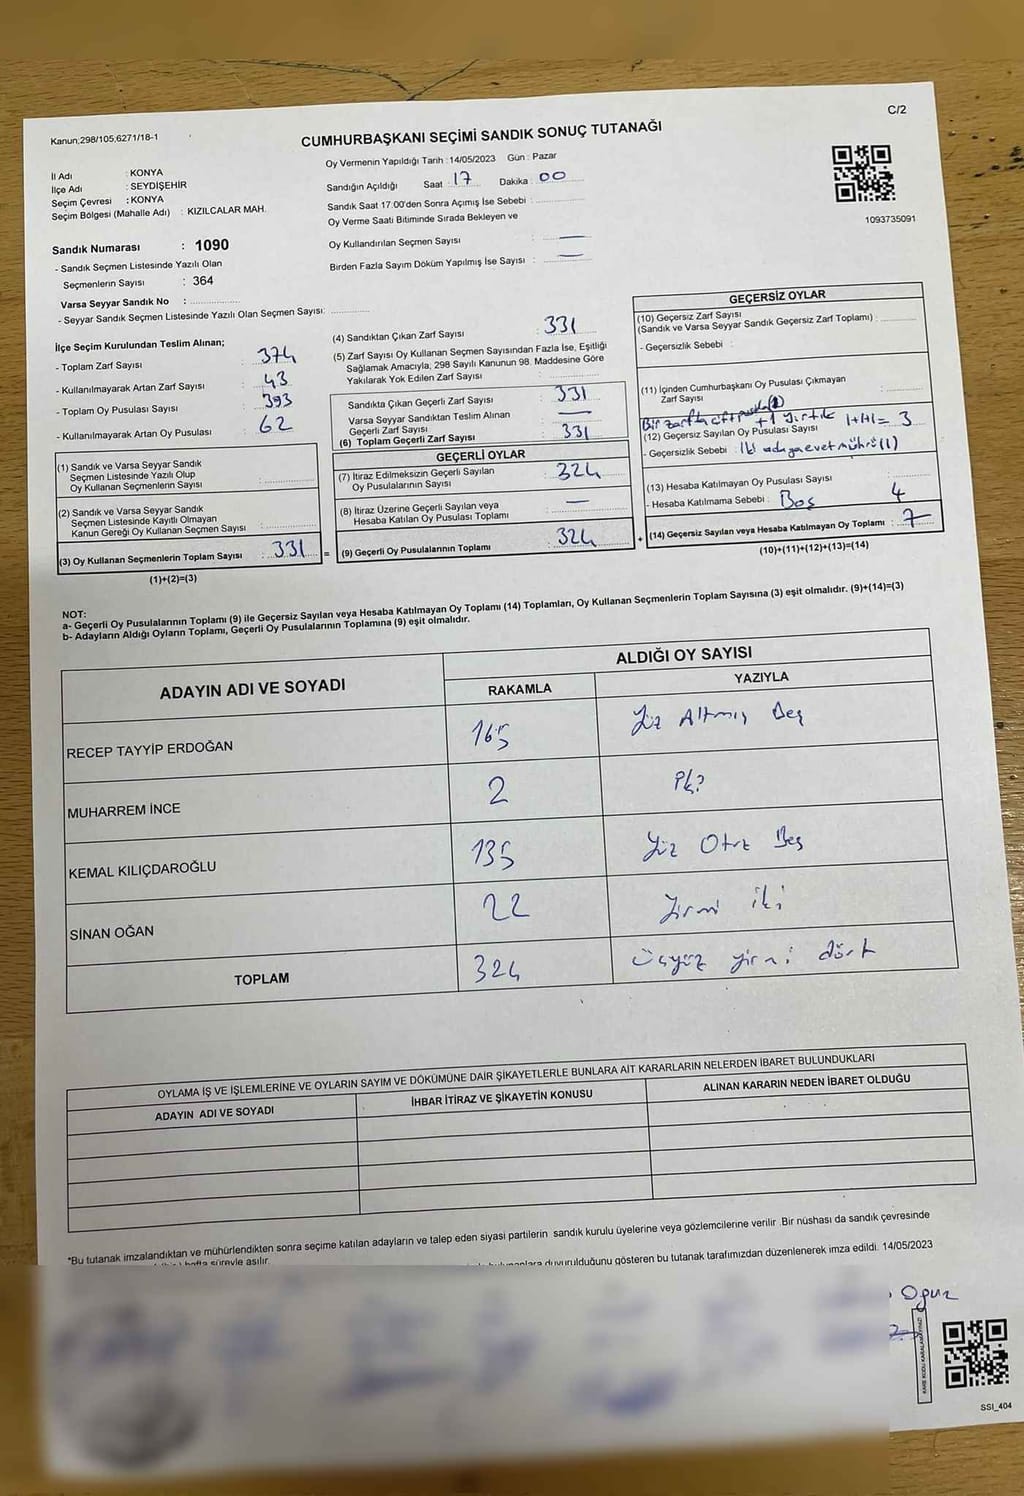 C/2
Kanun;298/105;6271/18-1
CUMHURBAŞKANI SEÇİMİ SANDIK SONUÇ TUTANAĞI
Oy Vermenin Yapıldığı Tarih : 14/05/2023 Gün : Pazar
İl Adı : KONYA
İlçe Adı : SEYDİŞEHİR
Seçim Çevresi : KONYA
Seçim Bölgesi (Mahalle Adı) : KIZILCALAR MAH.
Sandığın Açıldığı Saat : 17 Dakika : 00
Sandık Saat 17.00'den Sonra Açımış İse Sebebi :
Oy Verme Saati Bitiminde Sırada Bekleyen ve
Oy Kullandırılan Seçmen Sayısı : —
Birden Fazla Sayım Döküm Yapılmış İse Sayısı : —
1093735091
Sandık Numarası : 1090
- Sandık Seçmen Listesinde Yazılı Olan
Seçmenlerin Sayısı : 364
Varsa Seyyar Sandık No :
- Seyyar Sandık Seçmen Listesinde Yazılı Olan Seçmen Sayısı:
İlçe Seçim Kurulundan Teslim Alınan;
- Toplam Zarf Sayısı : 374
- Kullanılmayarak Artan Zarf Sayısı : 43
- Toplam Oy Pusulası Sayısı : 393
- Kullanılmayarak Artan Oy Pusulası : 62
(1) Sandık ve Varsa Seyyar Sandık
Seçmen Listesinde Yazılı Olup
Oy Kullanan Seçmenlerin Sayısı :
(2) Sandık ve Varsa Seyyar Sandık
Seçmen Listesinde Kayıtlı Olmayan
Kanun Gereği Oy Kullanan Seçmen Sayısı :
(3) Oy Kullanan Seçmenlerin Toplam Sayısı : 331 =
(1)+(2)=(3)
(4) Sandıktan Çıkan Zarf Sayısı : 331
(5) Zarf Sayısı Oy Kullanan Seçmen Sayısından Fazla İse, Eşitliği
Sağlamak Amacıyla; 298 Sayılı Kanunun 98. Maddesine Göre
Yakılarak Yok Edilen Zarf Sayısı :
Sandıkta Çıkan Geçerli Zarf Sayısı : 331
Varsa Seyyar Sandıktan Teslim Alınan
Geçerli Zarf Sayısı : —
(6) Toplam Geçerli Zarf Sayısı : 331
GEÇERLİ OYLAR
(7) İtiraz Edilmeksizin Geçerli Sayılan
Oy Pusulalarının Sayısı : 324
(8) İtiraz Üzerine Geçerli Sayılan veya
Hesaba Katılan Oy Pusulası Toplamı : —
(9) Geçerli Oy Pusulalarının Toplamı : 324 +
GEÇERSİZ OYLAR
(10) Geçersiz Zarf Sayısı
(Sandık ve Varsa Seyyar Sandık Geçersiz Zarf Toplamı) :
- Geçersizlik Sebebi :
(11) İçinden Cumhurbaşkanı Oy Pusulası Çıkmayan
Zarf Sayısı :
Bir zarfta çift pusula (1) +1 yırtık 1+1+1= 3
(12) Geçersiz Sayılan Oy Pusulası Sayısı
- Geçersizlik Sebebi : İki adaya evet mührü (1)
(13) Hesaba Katılmayan Oy Pusulası Sayısı :
- Hesaba Katılmama Sebebi : Boş 4
(14) Geçersiz Sayılan veya Hesaba Katılmayan Oy Toplamı : 7
(10)+(11)+(12)+(13)=(14)
NOT:
a- Geçerli Oy Pusulalarının Toplamı (9) ile Geçersiz Sayılan veya Hesaba Katılmayan Oy Toplamı (14) Toplamları, Oy Kullanan Seçmenlerin Toplam Sayısına (3) eşit olmalıdır. (9)+(14)=(3)
b- Adayların Aldığı Oyların Toplamı, Geçerli Oy Pusulalarının Toplamına (9) eşit olmalıdır.
ADAYIN ADI VE SOYADI
ALDIĞI OY SAYISI
RAKAMLA YAZIYLA
RECEP TAYYİP ERDOĞAN 165 Yüz Altmış Beş
MUHARREM İNCE 2
KEMAL KILIÇDAROĞLU 135 Yüz Otuz Beş
SİNAN OĞAN 22 Yirmi iki
TOPLAM 324 üçyüz yirmi dört
OYLAMA İŞ VE İŞLEMLERİNE VE OYLARIN SAYIM VE DÖKÜMÜNE DAİR ŞİKAYETLERLE BUNLARA AİT KARARLARIN NELERDEN İBARET BULUNDUKLARI
ADAYIN ADI VE SOYADI İHBAR İTİRAZ VE ŞİKAYETİN KONUSU ALINAN KARARIN NEDEN İBARET OLDUĞU
*Bu tutanak imzalandıktan ve mühürlendikten sonra seçime katılan adayların ve talep eden siyasi partilerin sandık kurulu üyelerine veya gözlemcilerine verilir. Bir nüshası da sandık çevresinde
hafta süreyle asılır.
duyurulduğunu gösteren bu tutanak tarafımızdan düzenlenerek imza edildi. 14/05/2023
Oğuz
SSI_404